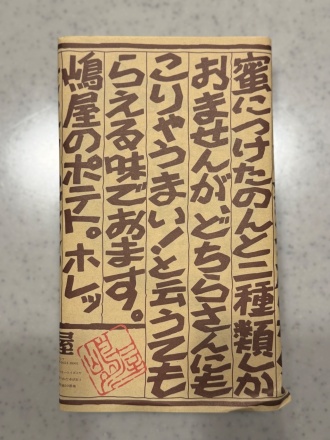 蜜につけたのんと二種類しか
おませんが、どちらさんにも
こりゃうまい！と云うても
らえる味でおます。
嶋屋のポテト。ホレッ
屋